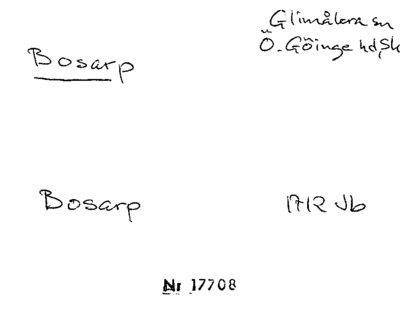 Glimåkra sn
Ö. Göinge hd, Sk
Bosarp
Bosarp
1712 Jb
Nr 17708